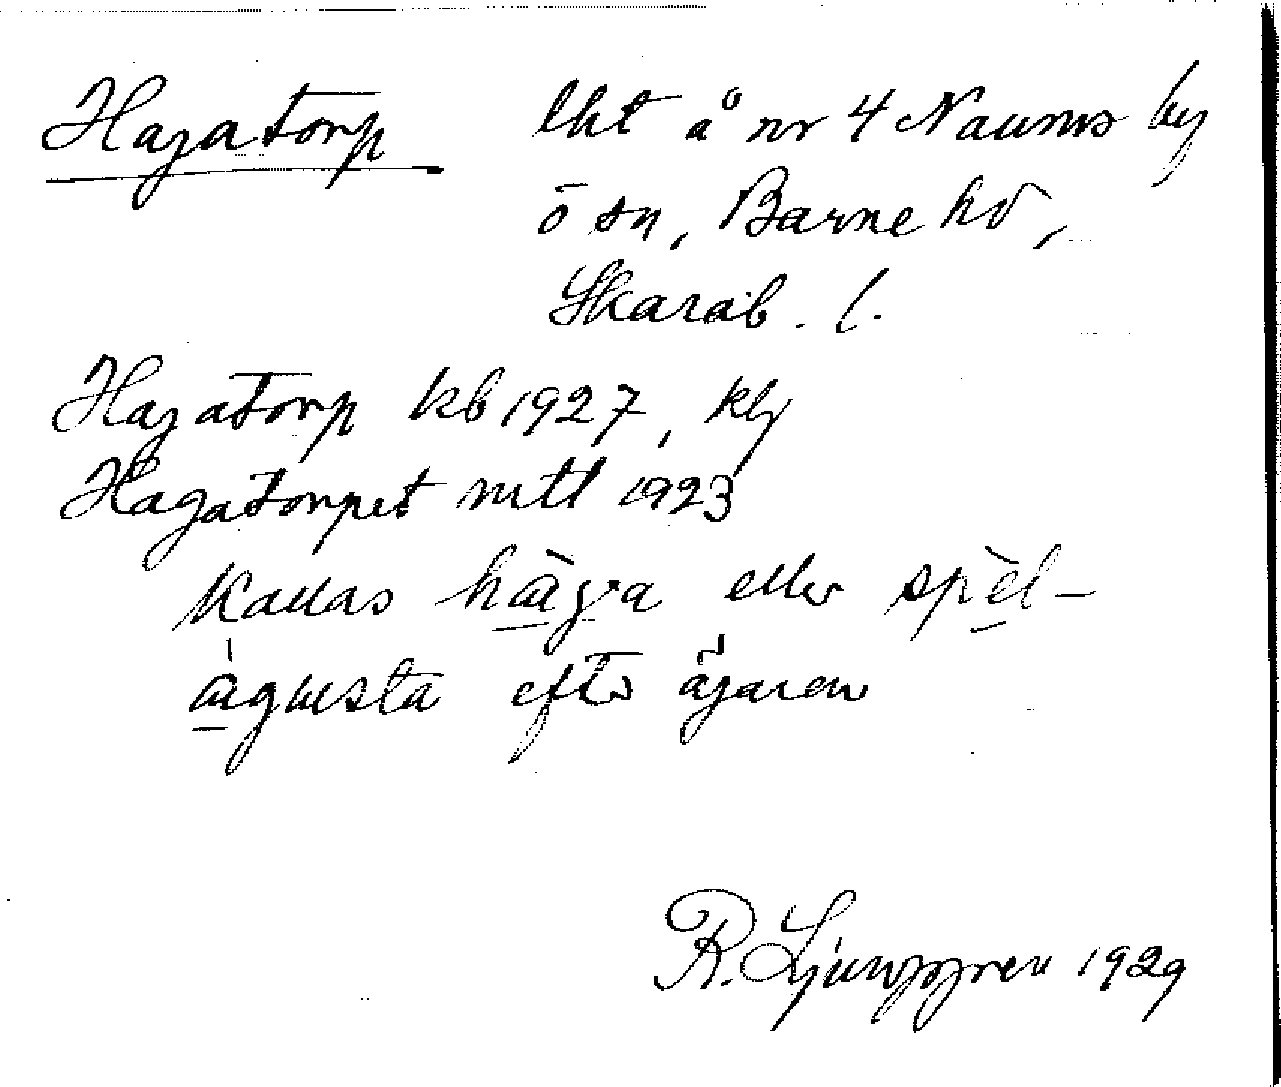 Hagatorp lht å nr 4 Naums by
ö sn, Barne hd,
Skarab. l.
Hagatorp kb 1927, kbg
Hagatorpet mtl 1923
kallas hàga eller spèl-
àgusta efter ägaren
R. Ljunggren 1929